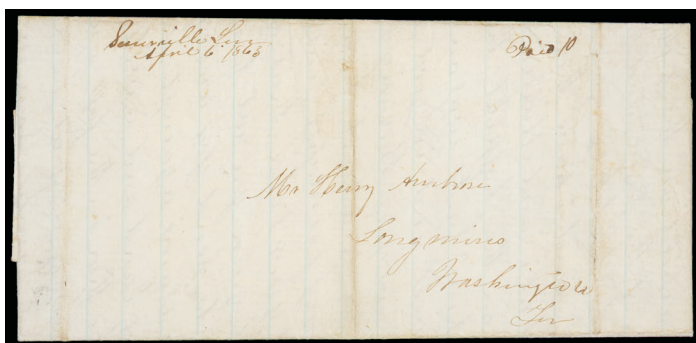 Ten
April 6 1863
Paid 10
Mr Henry Ambrose
Longmires
Washington
Ten